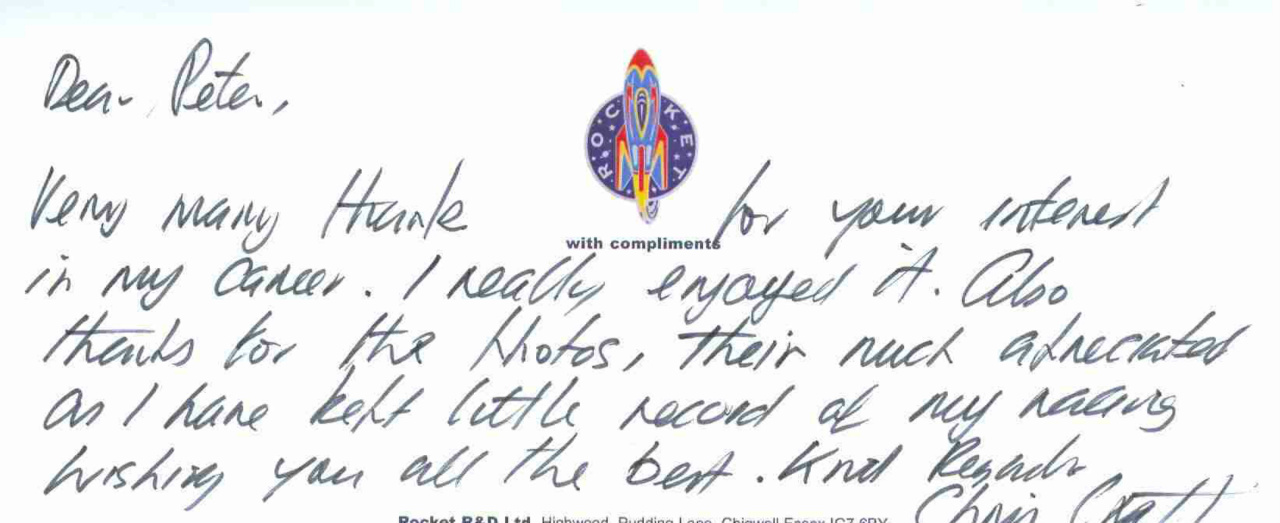 Dear Peter,
ROCKET
Very many thank for your interest
with compliments
in my career. I really enjoyed it. Also
thanks for the photos, their much apreciated
as I have kept little record of my racing
wishing you all the best. Kind Regards
Chris
Rocket R&D Ltd, Highwood, Pudding Lane, Chigwell Essex IG7 6BY